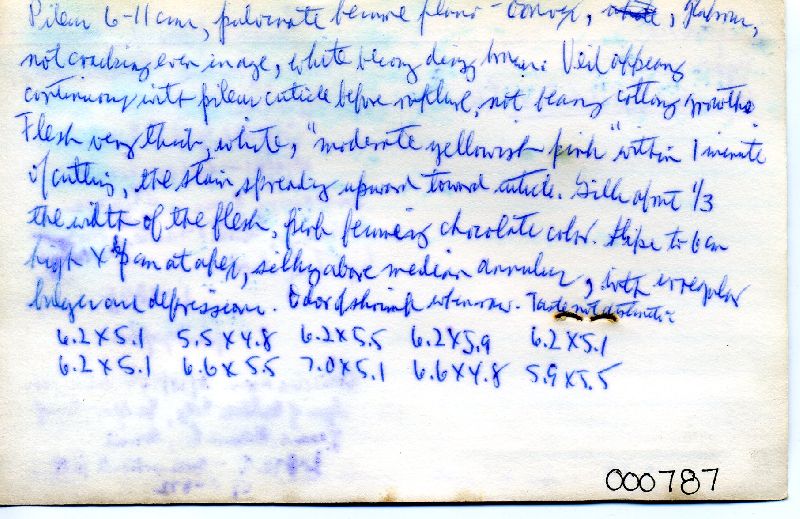 Pileus 6-11 cm, pulvinate become plano-convex, white, glabrous,
not cracking even in age, white becoming dingy brown. Veil appears
continuous with pileus cuticle before rupture, not bearing cottony growths.
Flesh very thick, white, "moderate yellowish pink" within 1 minute
of cutting, the stain spreading upward toward cuticle. Gills about 1/3
the width of the flesh, pink becoming chocolate color. Stipe to 6 cm
high X cm at apex, silky above median annulus, with irregular
bulges and depressions. Odor of shrimp when raw. Taste not distinctive
6.2 X 5.1 5.5 X 4.8 6.2 X 5.5 6.2 X 5.9 6.2 X 5.1
6.2 X 5.1 6.6 X 5.5 7.0 X 5.1 6.6 X 4.8 5.9 X 5.5
000787